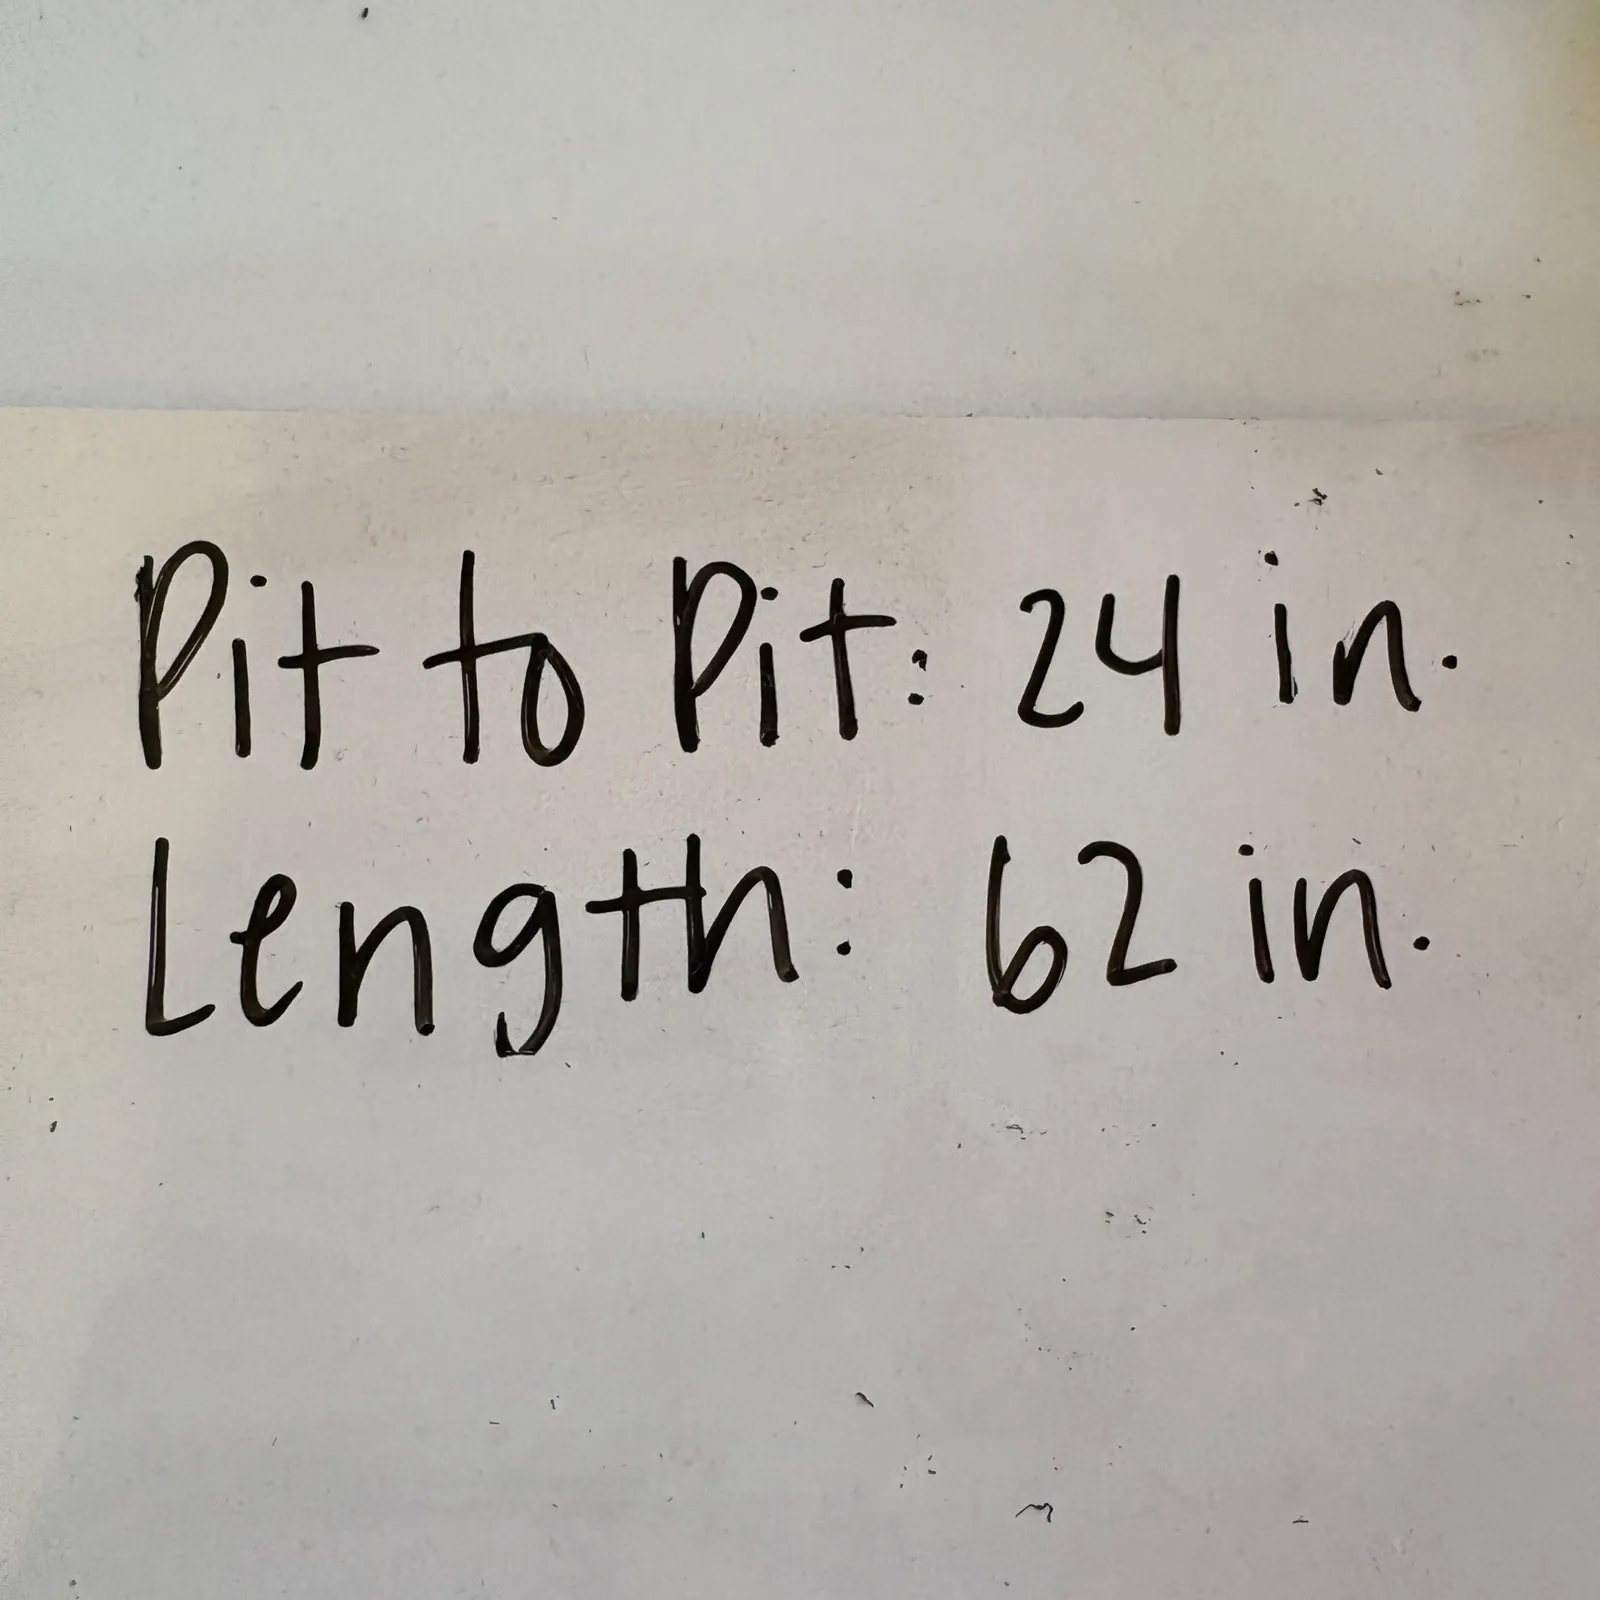 Pit to Pit: 24 in.
Length: 62 in.